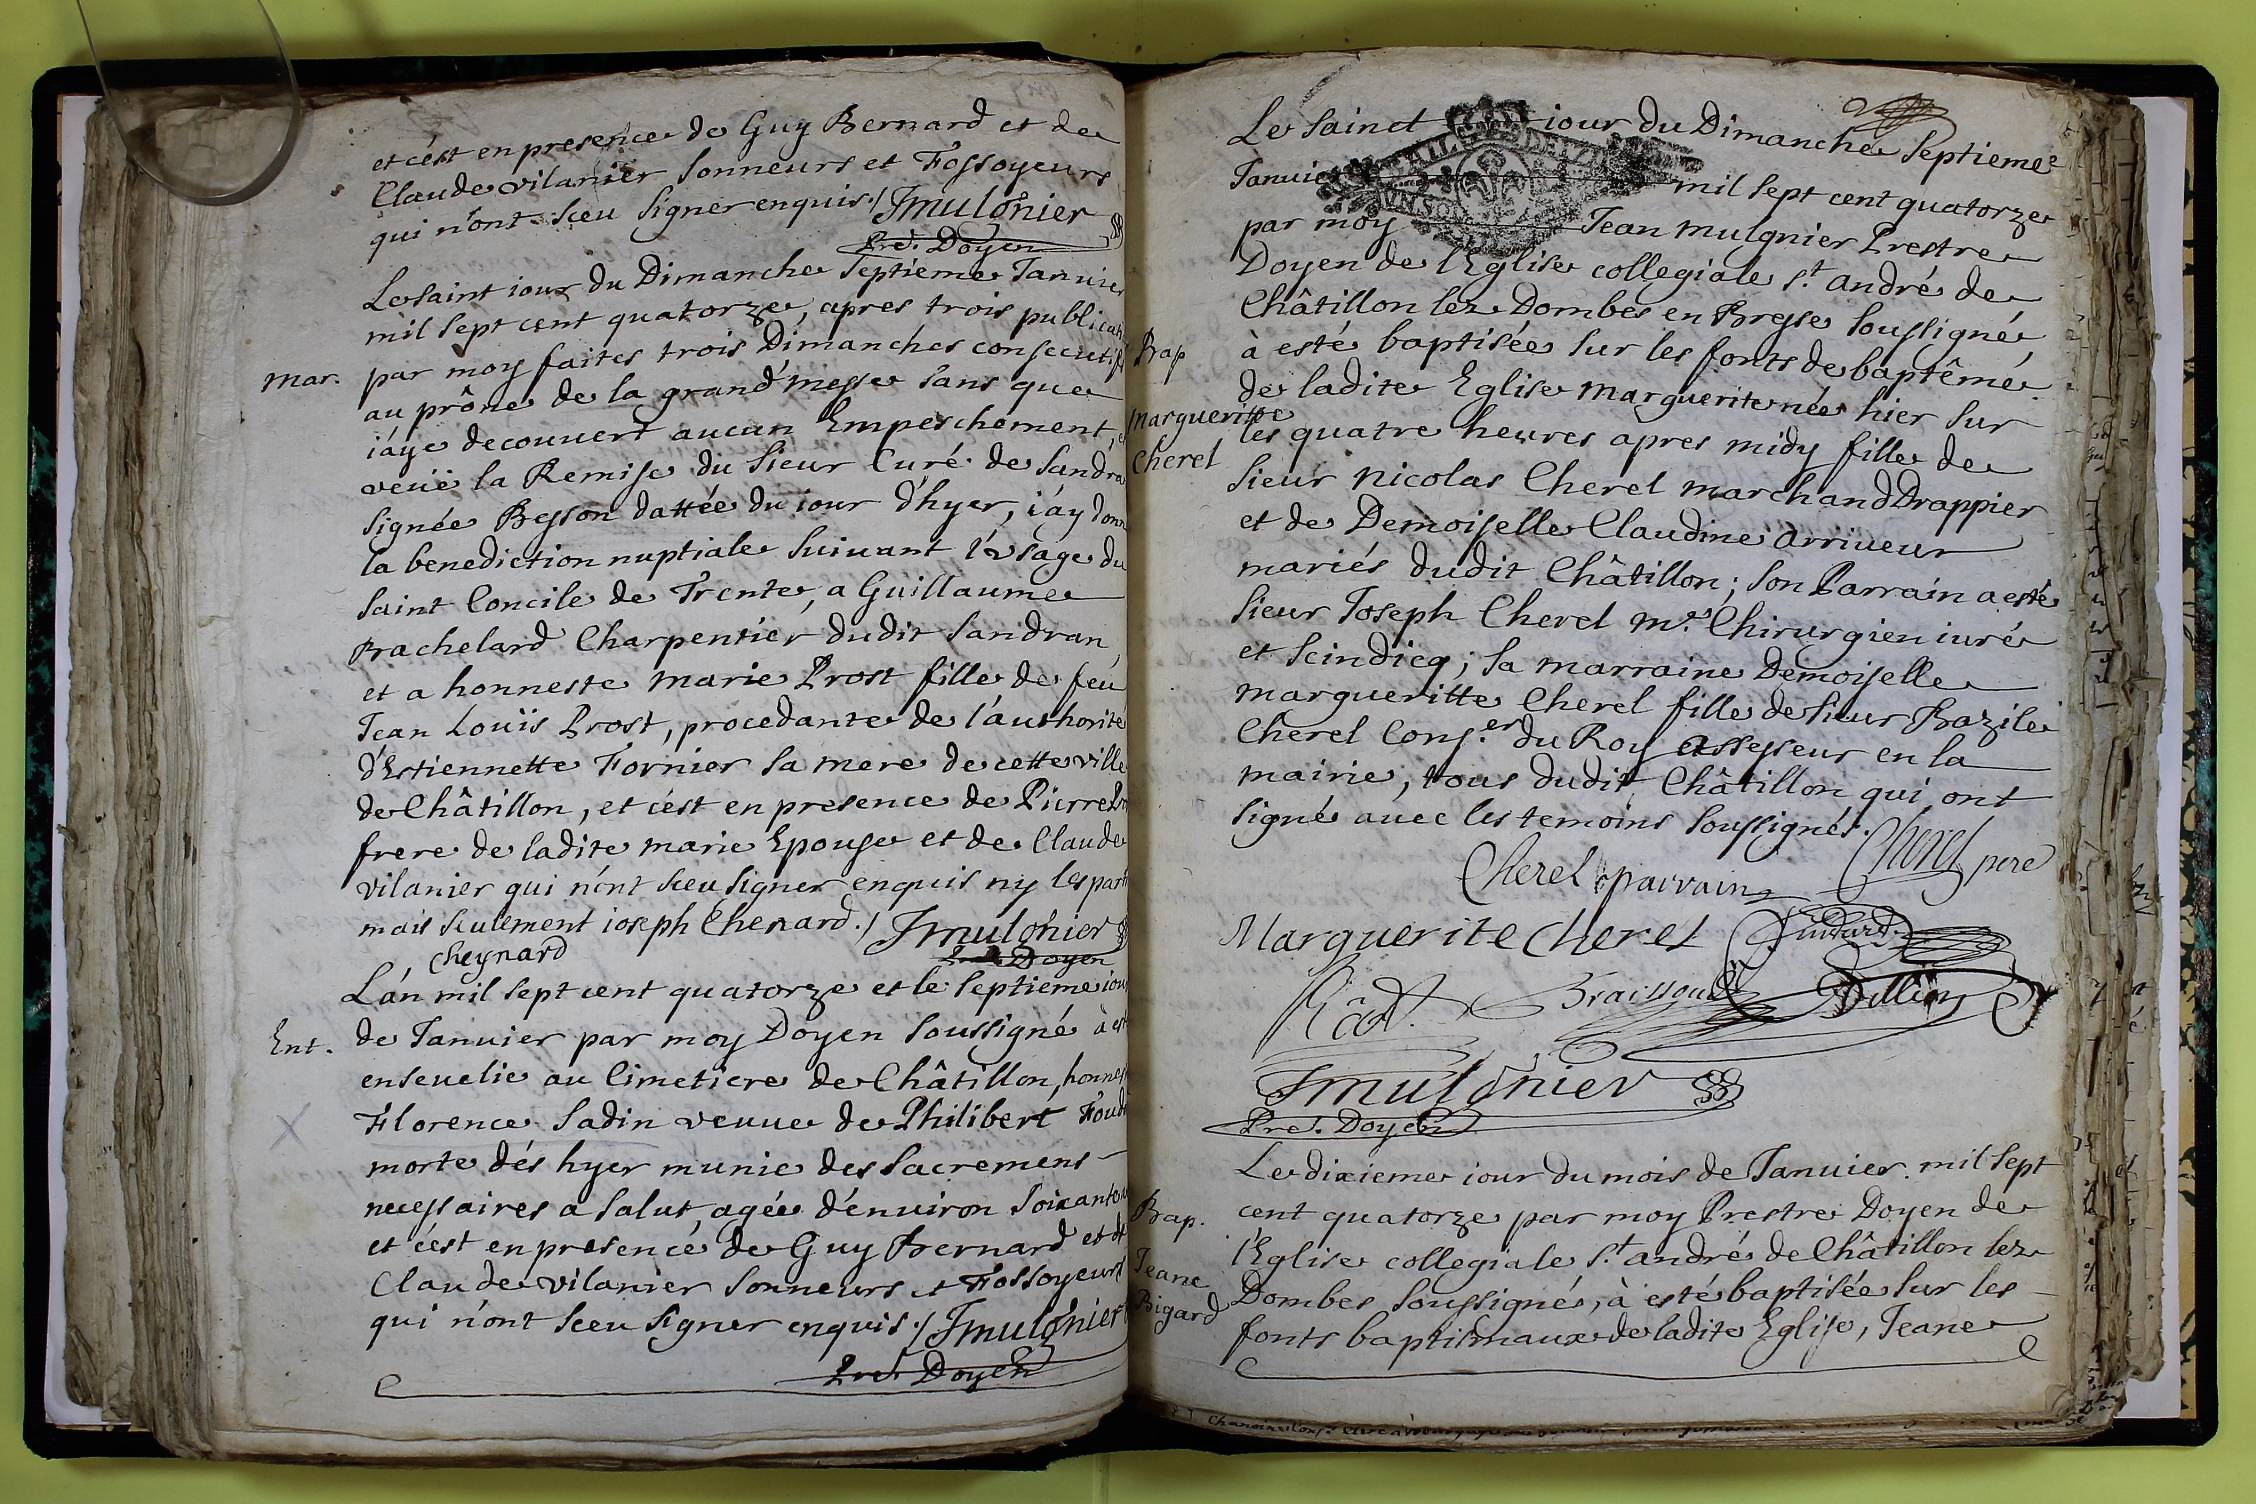 et c'ést en presence de Guy Bernard et de
Claude vilanier Sonneurs et Fossoyeurs
qui n'ont sceu signer enquis./ Jmulonier
Pre. Doyen
Le saint iour du Dimanche Septieme Januier
mil sept cent quatorze, apres trois publicat
mar. par moy faites trois Dimanches consecutifs
au prône de la grand'messe sans que
i'aye decouuert aucun Empeschement, et
veüe la Remise du sieur Curé de Sandra
signée Besson dattée du iour d'hyer, i'ay donn
la benediction nuptiale suiuant l'vsage du
saint Concile de Trente, a Guillaume
Brachelard Charpentier dudit Sandran,
et a honneste marie Prost fille de feu
Jean Loüis Prost, procedante de l'authorité
d'Estiennette Fornier sa mere de cette ville
de Châtillon, et c'ést en presence de Pierre Pro
frere de ladite marie Epouse et de Claude
vilanier qui n'ont sceu signer enquis ny les parti
mais seulement ioseph Chenard./ Jmulonier
Cheynard Pre. Doyen
L'án mil sept cent quatorze et le septieme iour
Ent. de Januier par moy Doyen soussigné à est
enseuelie au Cimetiere de Châtillon, honnes
Florence Sadin veuue de Philibert Foud
morte dés hyer munie des sacremens
necessaires a salut, agée d'énuiron soixante
et c'ést en presence de Guy Bernard et de
Claude vilanier sonneurs et Fossoyeurs
qui n'ont sceu signer enquis./ Jmulonier
Pre. Doyen
Le sainct iour du Dimanche septieme
Januier mil sept cent quatorze
par moy Jean mulonier Prestre
Doyen de l'Eglise collegiale st. andré de
Châtillon lez Dombes en Bresse soussigné
Bap à esté baptisée sur les fonts de baptême
de ladite Eglise marguerite née hier sur
margueritte les quatre heures apres midy fille de
Cherel
sieur Nicolas Cherel marchand Drappier
et de Demoiselle Claudine arriueur
mariés dudit Châtillon; son Parrain a esté
sieur Joseph Cherel mre. Chirurgien iuré
et scindicq; sa marraine Demoiselle
margueritte Cherel fille de sieur Bazile
Cherel Conser. du Roy assesseur en la
mairie, tous dudit Châtillon qui ont
signé auec les temoins soussignés.
Cherel parrain Cherel pere
Marguerite Cherel
Jmulonier
Pre. Doyen
Le dixieme iour du mois de Januier mil sept
Bap. cent quatorze par moy Prestre Doyen de
l'Eglise collegiale st. andré de Châtillon lez
Jeane Dombes soussigné, à esté baptisée sur les
Bigard fonts baptismaux de ladite Eglise, Jeane